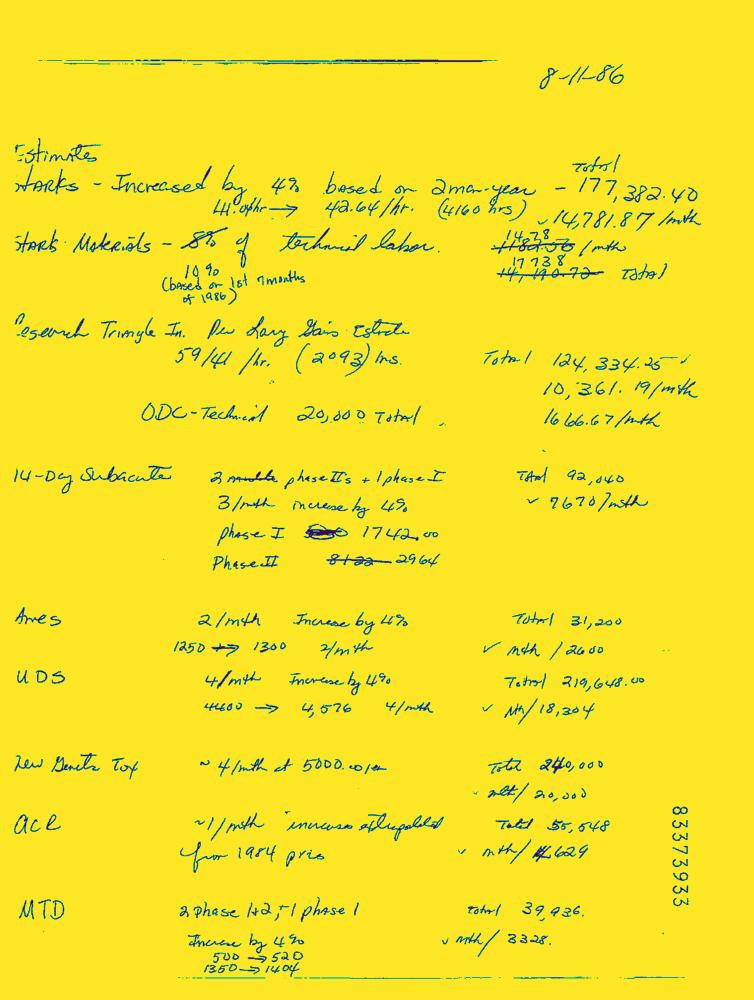 8-11-86
Estimates
STARKS - Increased by 4% based on 2man-year - Total 177,382.40
41.00/hr → 42.64/hr. (4160 hrs) 14,781.87/mth
Stark Materials - 8% of technical labor. 1478 /mth
10% 17738 Total
(based on 1st 7months
of 1986)
Research Triangle In. Per Larry
59/41 /hr. (2093) hrs. Total 124,334.25
10,361.19/mth
ODC-Technical 20,000 Total 1666.67/mth
14-Day Subacute 2 phase II's + 1 phase I Total 92,040
3/mth increase by 4% 7670/mth
phase I 1742.00
Phase II 8122 2964
Ames 2/mth Increase by 4% Total 31,200
1250 → 1300 2/mth mth/2600
UDS 4/mth Increase by 4% Total 219,648.00
4400 → 4,576 4/mth Mth/18,304
New Genetic Tox ~ 4/mth at 5000.00/ea Total 240,000
mth/20,000
ACR ~1/mth increases extrapolated Total 55,548
from 1984 price mth/4629
MTD 2 phase 1+2, 1 phase 1 total 39,936.
Increase by 4% mth/3328.
500 → 520
1350 → 1404
83373933